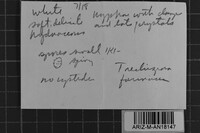 white 7/18
soft, delicate
hydnaceous
hyphae with clamp
and lots / crystals
spores small
spiny
no cystidia
Trechispora
farinacea
ARIZ-M-AN18147